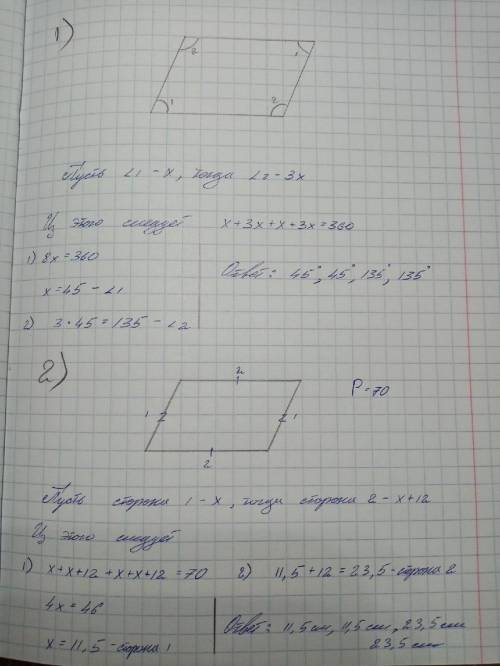 1)
2 1
1 2
Пусть ∠1 - x, тогда ∠2 - 3x
Из этого следует x+3x+x+3x=360
1) 8x=360
x=45 - ∠1
2) 3·45=135 - ∠2
Ответ: 45°, 45°, 135°, 135°
2)
2
1 1
2
P=70
Пусть сторона 1 - x, тогда сторона 2 - x+12
Из этого следует
1) x+x+12+x+x+12=70
4x=46
x=11,5 - сторона 1
2) 11,5+12=23,5 - сторона 2
Ответ: 11,5 см, 11,5 см, 23,5 см
23,5 см